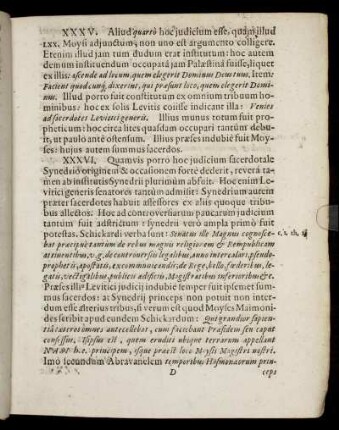 XXXV. Aliud quarrò hoc judicium esse, quàm illud
LXX. Moysi adjunctum, non uno est argumento colligere.
Etenim illud jam tum dudum erat institutum: hoc autem
demum instituendum occupatâ jam Palæstinâ fuisse, liquet
ex illis: ascende ad locum, quem elegerit Dominus Deus tuus. Item:
Facient quodcunq; dixerint, qui præsunt loco, quem elegerit Domi-
nus. Illud porro fuit constitutum ex omnium tribuum ho-
minibus: hoc ex solis Levitis coiisse indicant illa: Venies
ad sacerdotes Levitici generis. Illius munus totum fuit pro-
pheticum: hoc circa lites quasdam occupari tantùm debu-
it, ut paulò antè ostensum. Illius præses indubiè fuit Moy-
ses: hujus autem summus sacerdos.
XXXVI. Quamvis porro hoc judicium sacerdotale
Synedrio originem & occasionem fortè dederit, reverâ ta-
men ab institutis Synedrii plurimùm abfuit. Hoc enim Le-
vitici generis senatores tantùm admisit: Synedrium autem
præter sacerdotes habuit assessores ex aliis quoque tribu-
bus allectos. Hoc ad controversiarum paucarum judicium
tantùm fuit adstrictum: synedrii verò ampla primò fuit
potestas. Schickardi verba sunt: Senatus ille Magnus cognosce- c. 1. th. 2.
bat præcipuè tantùm de rebus magnis religionem & Rempublicam
attinentibus, v. g. de controversiis legalibus, anno intercalari, pseudo-
prophetis, apostatis, excommunicandis: de Rege, bello, fœderibus, le-
gatis, vectigalibus, publicis ædificiis, Magistratibus inferioribus &c.
Præses illis Levitici judicij indubiè semper fuit ipsemet sum-
mus sacerdos: at Synedrij princeps non potuit non inter-
dum esse alterius tribus, si verum est quod Moyses Maimoni-
des scribit apud eundem Schickardum: Qui grandior sapien-
tiâ cæteros omnes antecellebat, cum faciebant Præsidem seu caput
confessus. Ipsus est, quem eruditi ubique terrarum appellant
h. e. principem, isque præest loco Moysis Magistri nostri.
Imò secundum Abravanelem temporibus Hasmonæorum prin-
D
ceps